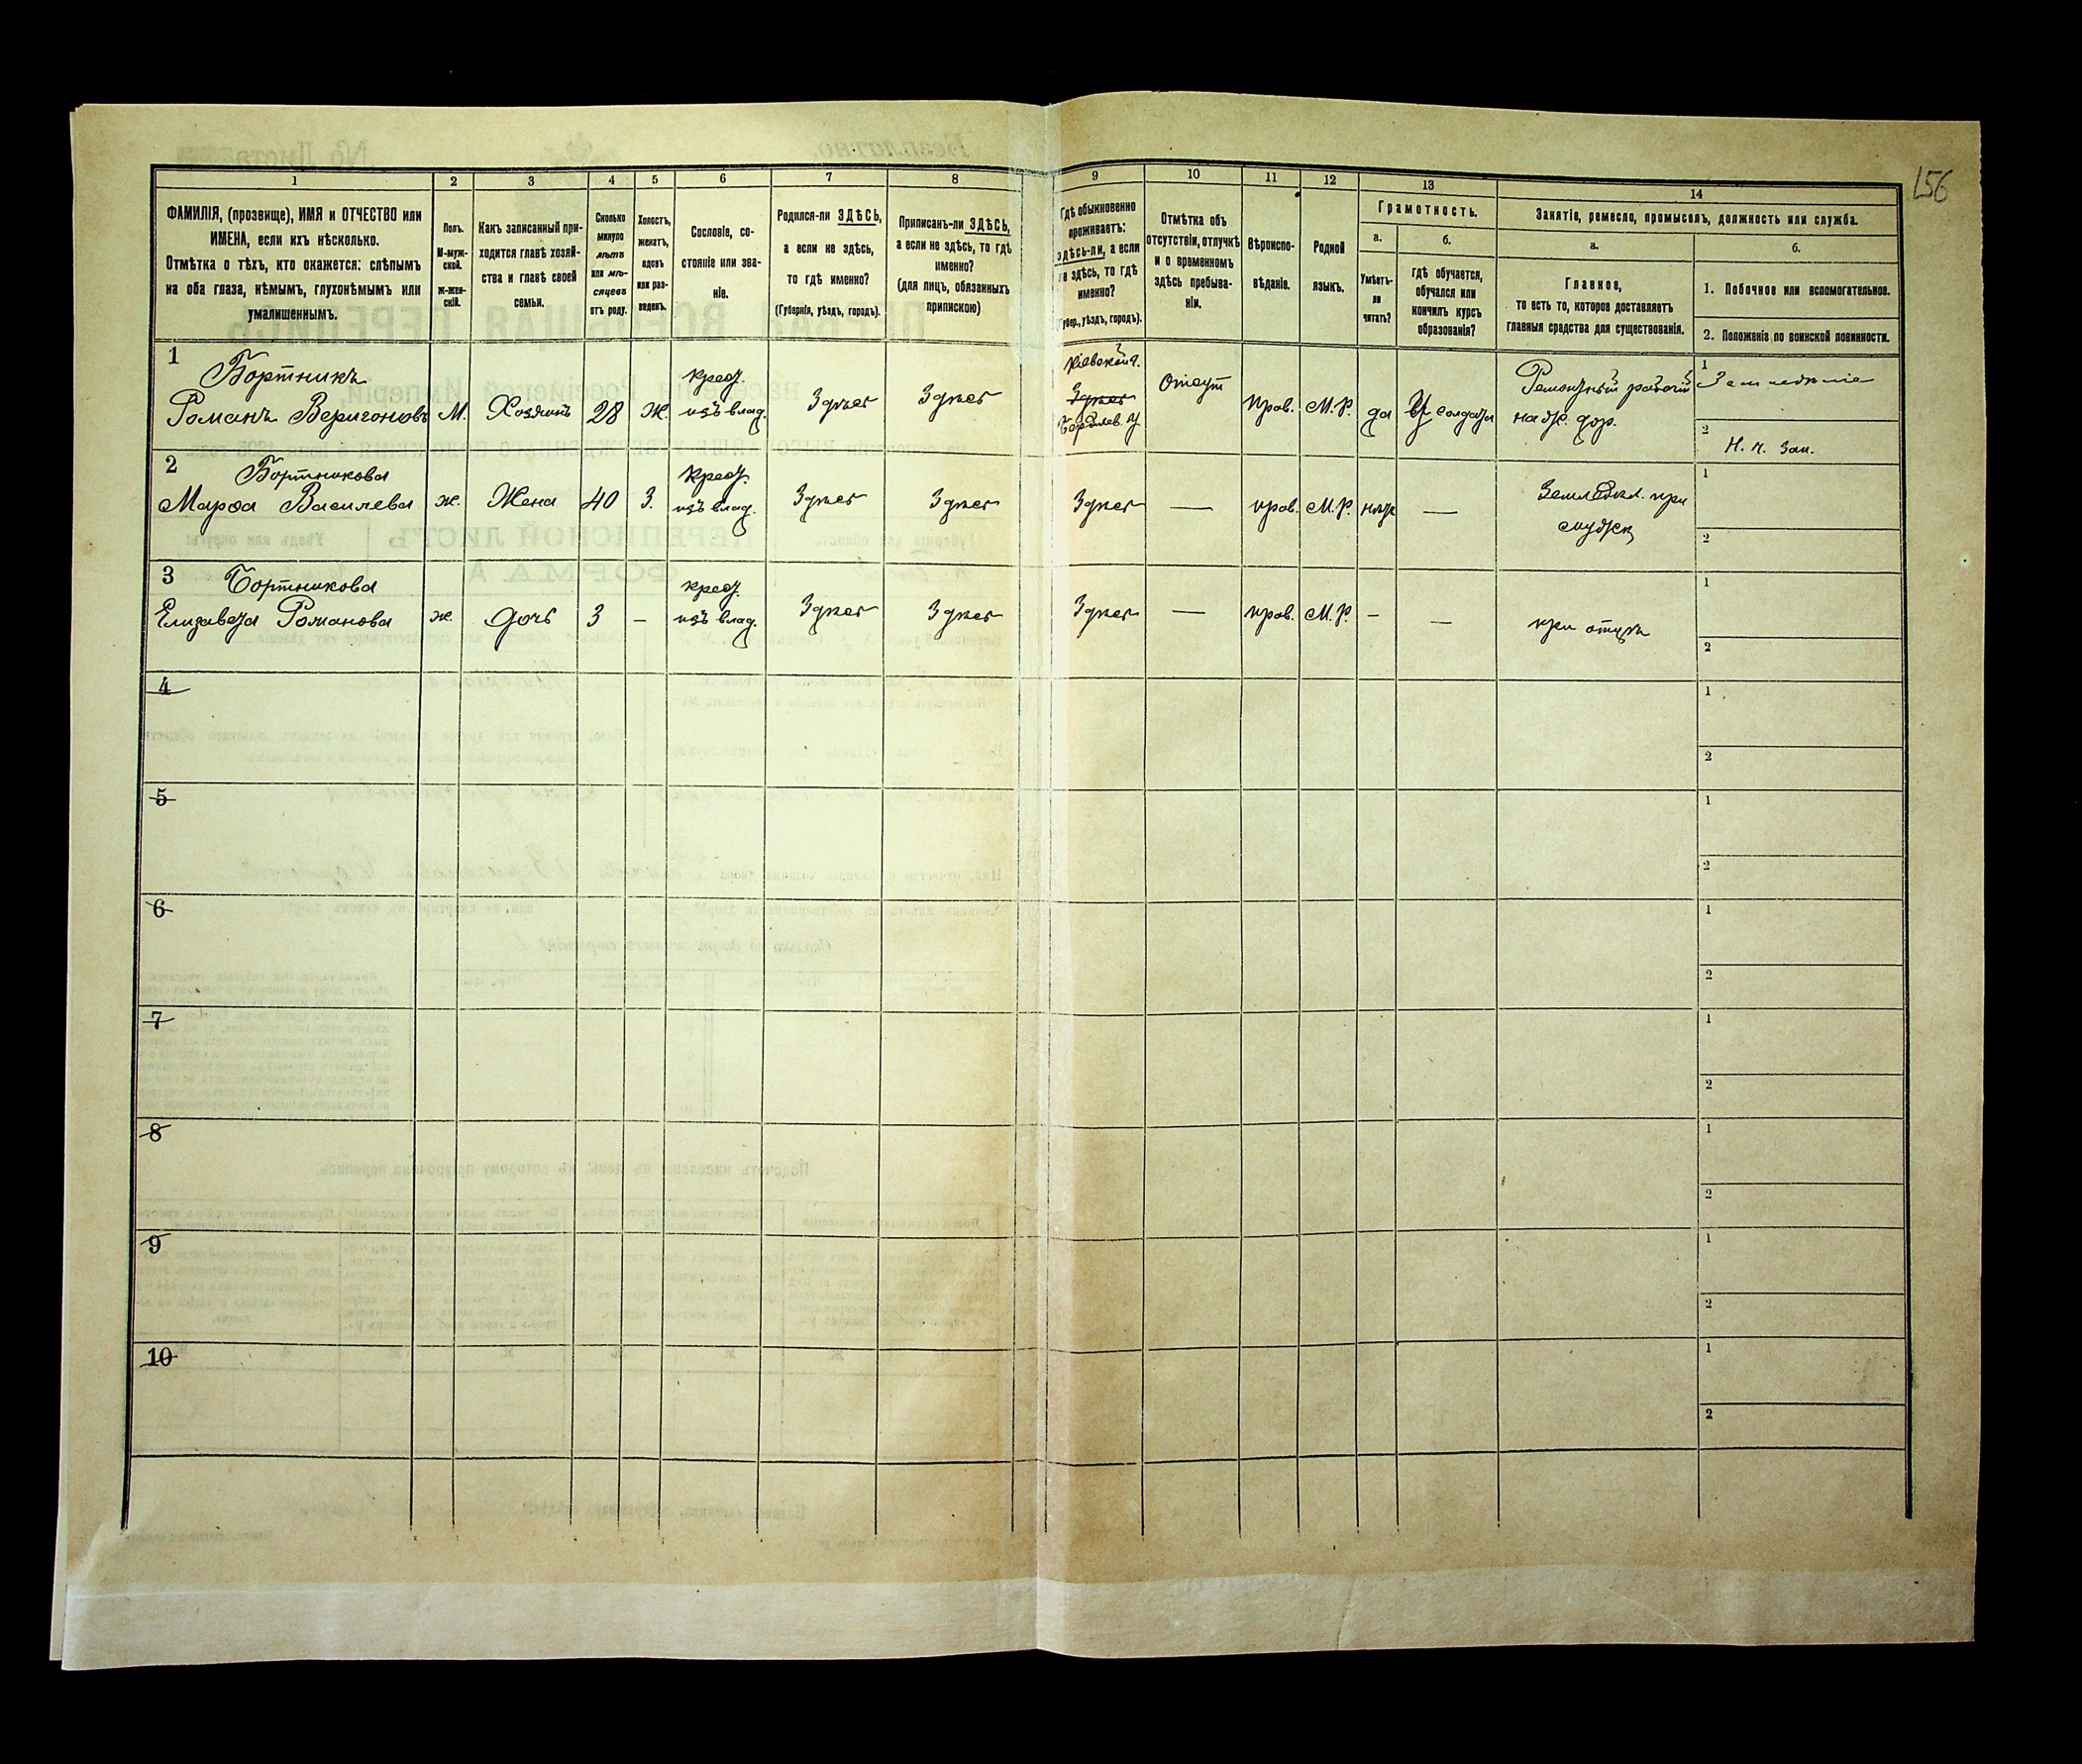 156
1 2 3 4 5 6 7 8 9 10 11 12 13 14
ФАМИЛІЯ, (прозвище), ИМЯ и ОТЧЕСТВО или
ИМЕНА, если ихъ нѣсколько.
Отмѣтка о тѣхъ, кто окажется: слѣпымъ
на оба глаза, нѣмымъ, глухонѣмымъ или
умалишеннымъ.
Полъ.
М-муж-
ской.
Ж-жен-
скій.
Какъ записанный при-
ходится главѣ хозяй-
ства и главѣ своей
семьи.
Сколько
минуло
лѣтъ
или мѣ-
сяцевъ
отъ роду.
Холостъ,
женатъ,
вдовъ
или раз-
веденъ.
Сословіе, со-
стояніе или зва-
ніе.
Родился-ли ЗДѢСЬ,
а если не здѣсь,
то гдѣ именно?
(Губернія, уѣздъ, городъ).
Приписанъ-ли ЗДѢСЬ,
а если не здѣсь, то гдѣ
именно?
(для лицъ, обязанныхъ
припискою)
Гдѣ обыкновенно
проживаетъ:
здѣсь-ли, а если
не здѣсь, то гдѣ
именно?
(Губер., уѣздъ, городъ).
Отмѣтка объ
отсутствіи, отлучкѣ
и о временномъ
здѣсь пребыва-
ніи.
Вѣроиспо-
вѣданіе.
Родной
языкъ.
Грамотность.
а.
Умѣетъ-
ли
читать?
б.
гдѣ обучается,
обучался или
кончилъ курсъ
образованія?
Занятіе, ремесло, промыселъ, должность или служба.
а.
Главное,
то есть то, которое доставляетъ
главныя средства для существованія.
б.
1. Побочное или вспомогательное.
2. Положеніе по воинской повинности.
1 Бортникъ
Романъ М. Хозяинъ 28 Ж. крест. изъ влад. Здѣсь Здѣсь
Кіевской г.
Здѣсь
Отсут. прав. М.Р. да солдат
Ремонтный рабочій
на жел. дор.
1
2
Н. ч. Зап.
2 Бортникова
Марѳа Васильева ж. Жена 40 З. крест. изъ влад. Здѣсь Здѣсь Здѣсь — прав. М.Р. нѣтъ —
Земледѣл. при
мужѣ
1
2
3 Бортникова
Елизавета Романова ж. дочь 3 – крест. изъ влад. Здѣсь Здѣсь Здѣсь — прав. М.Р. – — при отцѣ
1
2
4
1
2
5
1
2
6
1
2
7
1
2
8
1
2
9
1
2
10
1
2